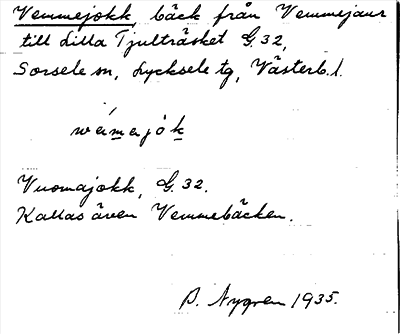 Vemmejokk, bäck från Vemmejaur
till Lilla Tjulträsket G.32,
Sorsele sn, Lycksele tg, Västerb. l.
Vuomajokk, G.32.
Kallas även Vemmebäcken.
B. Nygren 1935.